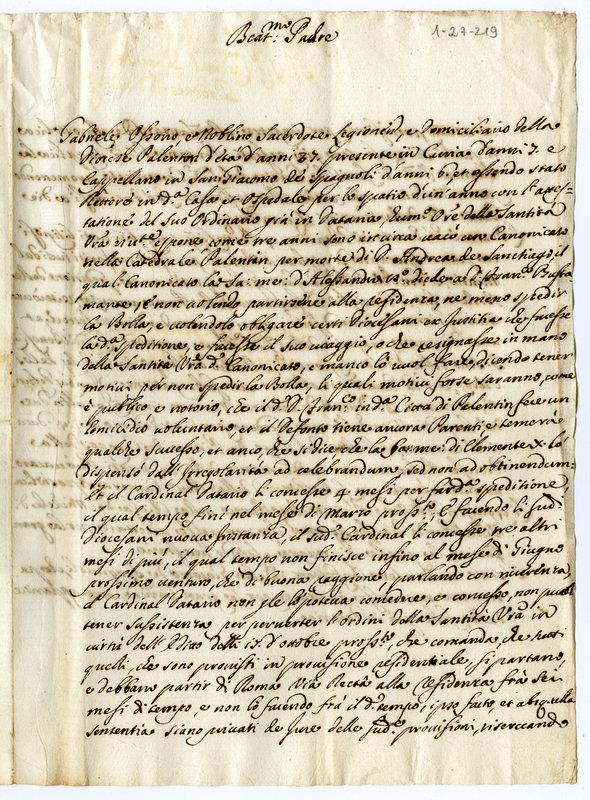 Beat.mo Padre
1-27-219
Gabriele Ossorio, e Moblino Sacerdote Legionen, e Domiciliario della
Diocese Palentin d'età d'anni 37. presente in Curia d'anni 7. e
Cappellano in San Giacomo de Spagnoli d'anni 6. et essendo stato
Rettore in d.a Casa et Ospedale per lo spatio d'un'anno con l'attes-
tatione del suo Ordinario già in Dataria, hum.e Ore della Santità
Vra espone come tre anni sono incirca vacò un Canonicato
nella Catedrale Palentin per morte di D. Andrea de Sanctiago, il
qual Canonicato la Sa: me: d'Alessandro diede a D. Fran.co Busta
mante, e non volendo partirsene alla residenza, ne meno spedir
la Bolla, e volendolo obligare certi Diocesani ex Justitia che facesse
la d.a speditione, e facesse il suo viaggio, o che resignasse in mano
della Santità Vra d.o Canonicato, e manco lo vuol fare, dicendo tener
motivi per non spedir la Bolla, li quali motivi forse saranno, come
è publico e notorio, che il d.o D. Fran.co in d.a Città di Palentin fece un
homicidio voluntario, et il defonto tiene ancora Parenti e temerà
qualche successo, et anco, che si dice che la me: di Clemente X. lo
dispensò dall'Irregolarità ad celebrandum, sed non ad obtinendum.
Et il Cardinal Datario li concesse 4 mesi per far d.a speditione,
il qual tempo finì nel mese di Marzo pross.o E facendo li sud.i
Diocesani nuova Instanza, il sud.o Cardinal li concesse tre altri
mesi di più, il qual tempo non finisce infino al mese di Giugno
prossimo venturo, che di buona raggione, parlando con riverenza,
il Cardinal Datario non gle lo poteva concedere, e concesso, non puol
tener sussistenza per pervertir l'ordini della Santità Vra in
virtù dell'Editto delli d'ottobre pross.o, che comanda, che tutti
quelli che sono provisti in provisione residentiale, si partano,
e debbano partir di Roma via Recta alla residenza frà sei
mesi di tempo, e non lo facendo frà il d.o tempo, ipso facto, et absq. ulla
sententia siano privati de Jure delle sud.e provisioni, riservando